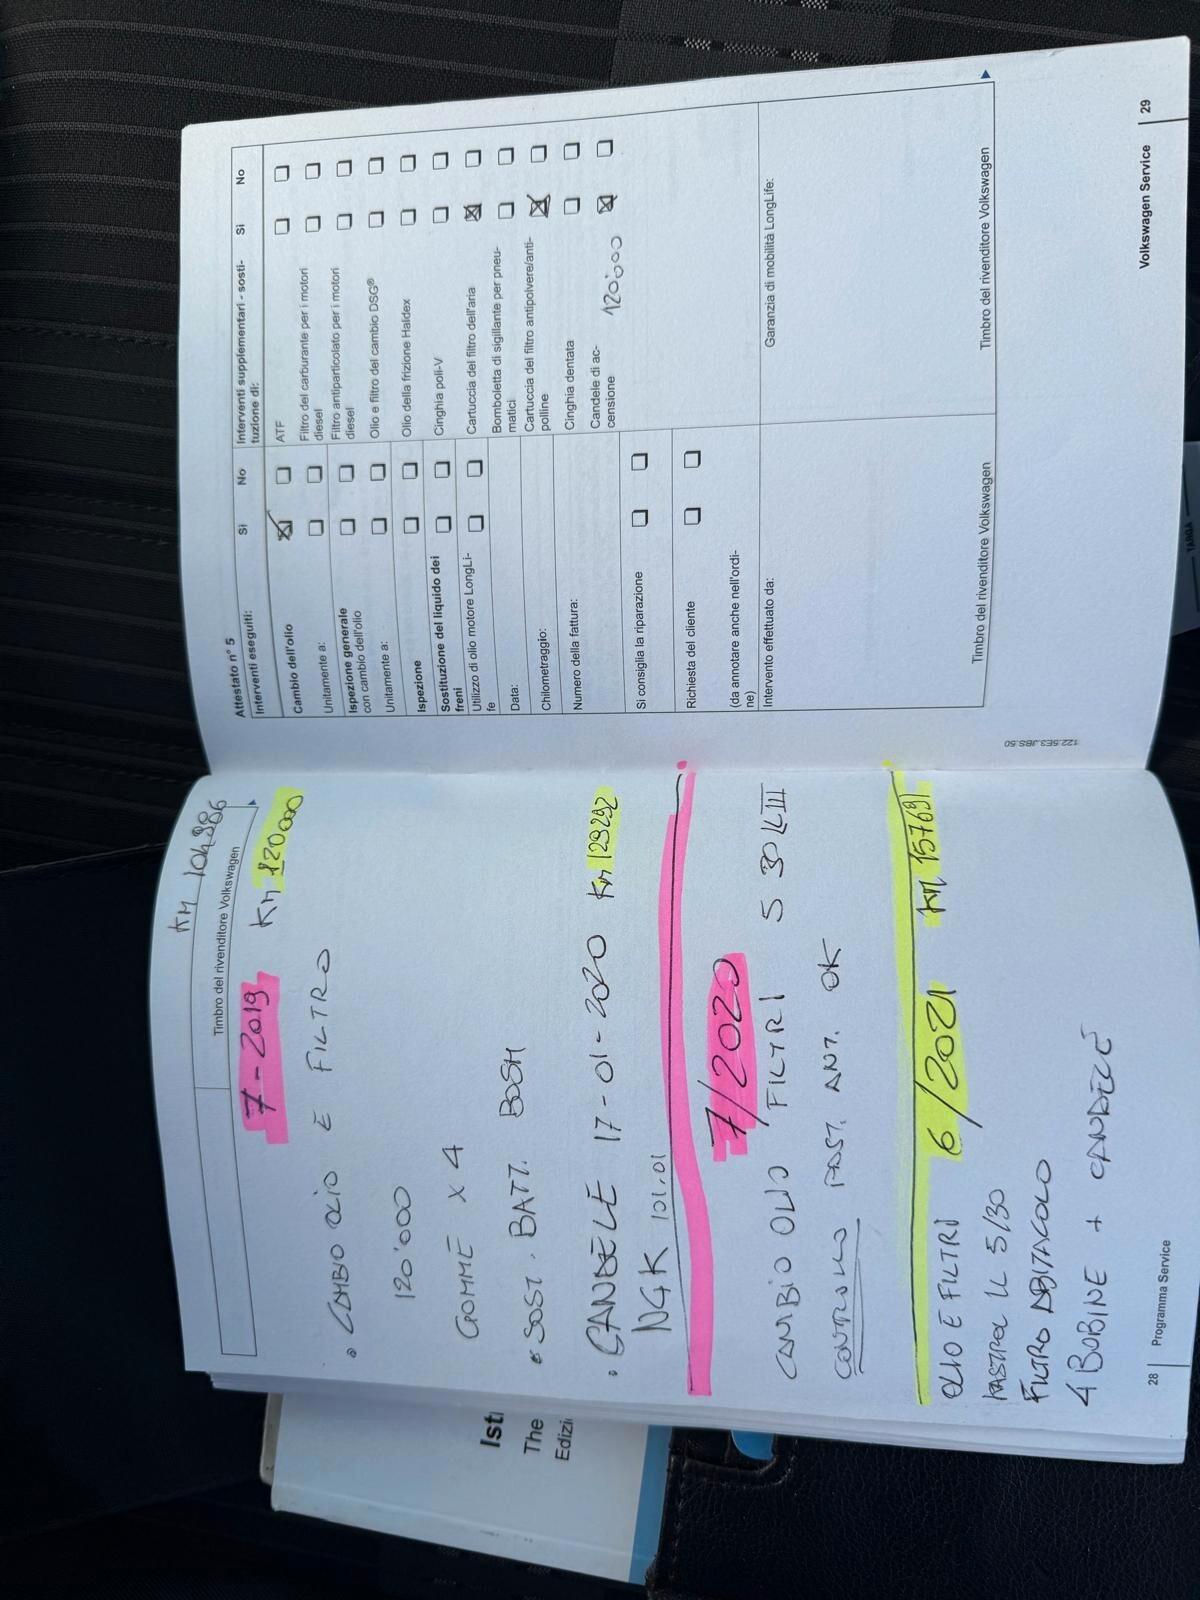 KM 104986
Timbro del rivenditore Volkswagen
7-2019 Km 120000
• CAMBIO OLIO E FILTRO
120'000
GOMME X 4
• SOST. BATT. BOSH
• CANDELE 17-01-2020 Km 129292
NGK 101.01
7/2020
CAMBIO OLIO FILTRI 5 30 LL III
CONTROLLO POST. ANT. OK
6/2021 KM 157691
OLIO E FILTRI
5/30
FILTRO ABITACOLO
4 BOBINE + CANDELE
28 | Programma Service
Attestato n° 5
Interventi eseguiti: Sì No
Cambio dell'olio
Unitamente a:
Ispezione generale
con cambio dell'olio
Unitamente a:
Ispezione
Sostituzione del liquido dei
freni
Utilizzo di olio motore LongLi-
fe
Data:
Chilometraggio:
Numero della fattura:
Si consiglia la riparazione
Richiesta del cliente
(da annotare anche nell'ordi-
ne)
Intervento effettuato da:
Timbro del rivenditore Volkswagen
Interventi supplementari - sosti-
tuzione di: Sì No
ATF
Filtro del carburante per i motori
diesel
Filtro antiparticolato per i motori
diesel
Olio e filtro del cambio DSG®
Olio della frizione Haldex
Cinghia poli-V
Cartuccia del filtro dell'aria
Bomboletta di sigillante per pneu-
matici
Cartuccia del filtro antipolvere/anti-
polline
Cinghia dentata
Candele di ac-
censione 120'000
Garanzia di mobilità LongLife:
Timbro del rivenditore Volkswagen
122.5E3.JBS.50
Volkswagen Service | 29
Isti
The
Edizi
TARGA